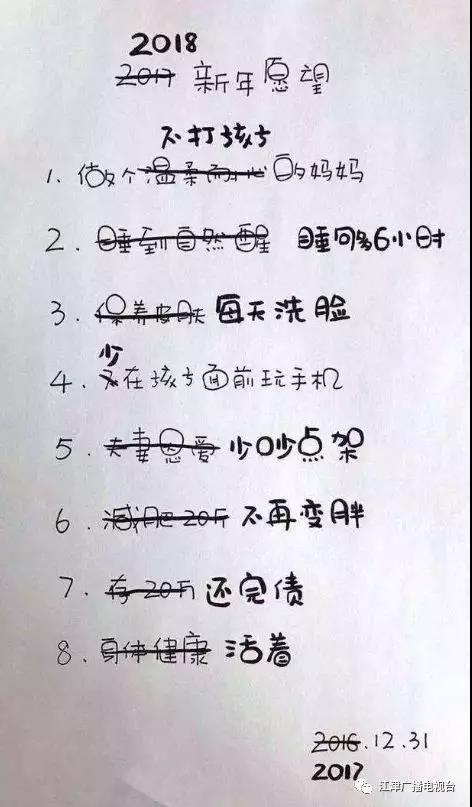 2018
2017 新年愿望
不打孩子
1. 做个温柔耐心的妈妈
2. 睡到自然醒 睡够6小时
3. 保养皮肤 每天洗脸
少
4. 不在孩子面前玩手机
5. 夫妻恩爱 少吵点架
6. 减肥20斤 不再变胖
7. 存20万 还完债
8. 身体健康 活着
2016.12.31
2017
江津广播电视台